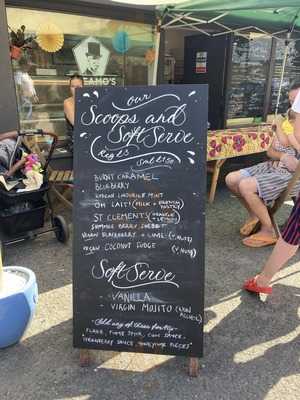 our
Scoops and
Soft Serve
Reg £3
Small £1.50
BURNT CARAMEL
BLUEBERRY
VEGAN
MINT
OH LAIT! (MILK + FRENCH
ST CLEMENTS (ORANGE
+ LEMON)
SUMMER BERRY SORBET
VEGAN BLACKBERRY + LIME (V, NUTS)
VEGAN COCONUT FUDGE (V, NUTS)
Soft Serve
- VANILLA
- VIRGIN MOJITO (NON
ALCOHOLIC)
Add any of these for
FLAKE, FUDGE STICK, CHOC SAUCE,
STRAWBERRY SAUCE, HONEYCOMB PIECES